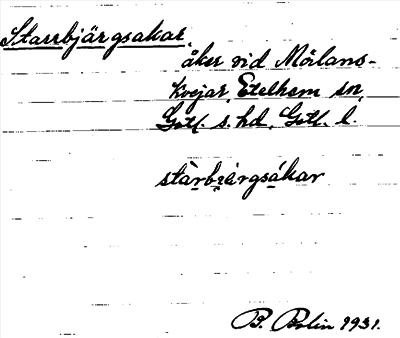 Starrbjärgsakar
åker vid Mörlans-
kvejar, Etelhem sn,
Gotl. s. hd, Gotl. l.
stàrbjèrgsákar
B. Bolin 1931.